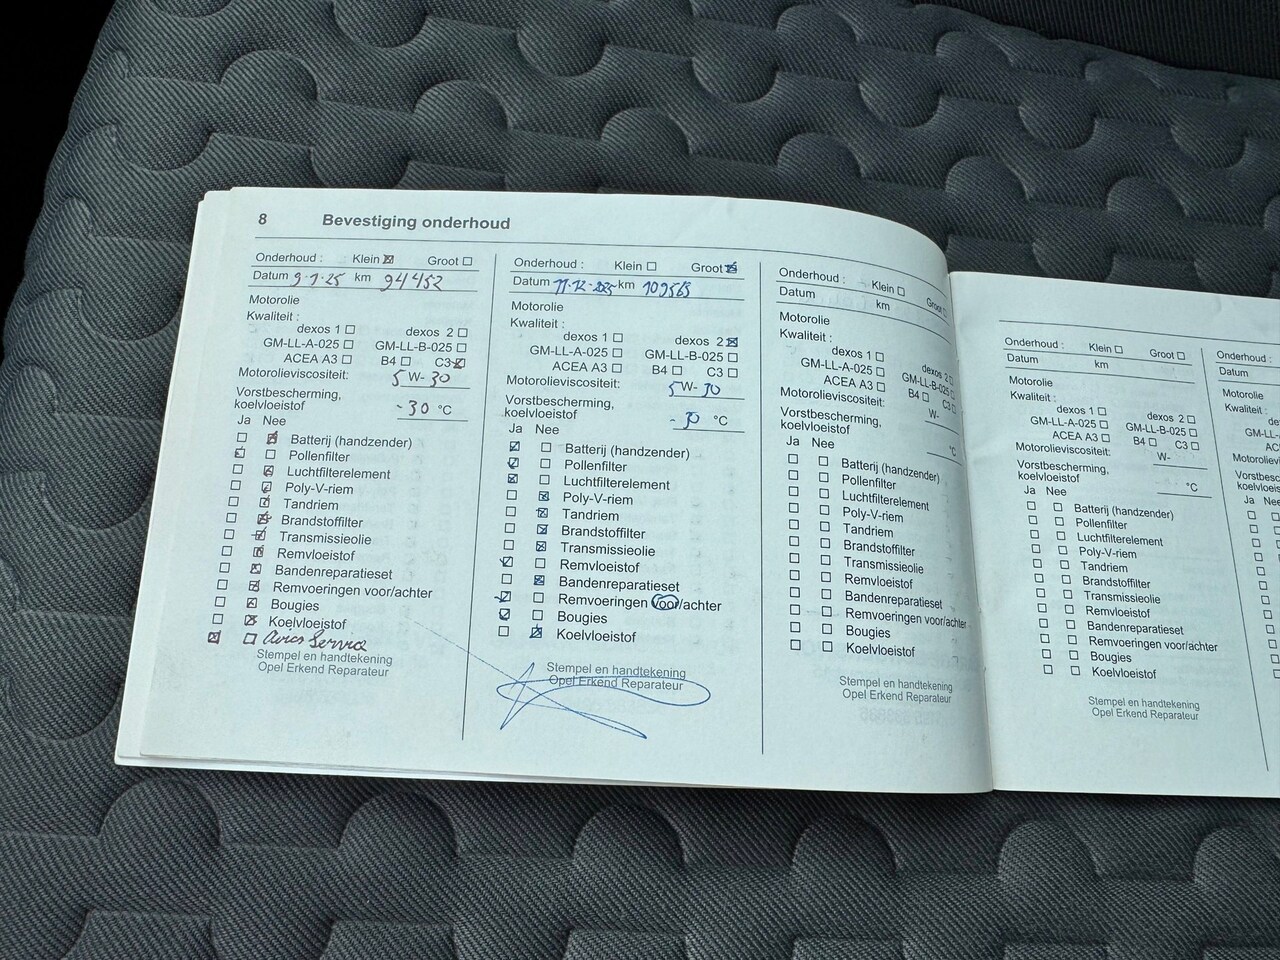 8 Bevestiging onderhoud
Onderhoud : Klein ☒ Groot ☐
Datum 9-1-25 km 94452
Motorolie
Kwaliteit :
dexos 1 ☐ dexos 2 ☐
GM-LL-A-025 ☐ GM-LL-B-025 ☐
ACEA A3 ☐ B4 ☐ C3 ☒
Motorolieviscositeit: 5 W- 30
Vorstbescherming,
koelvloeistof -30 °C
Ja Nee
☐ ☒ Batterij (handzender)
☑ ☐ Pollenfilter
☐ ☒ Luchtfilterelement
☐ ☑ Poly-V-riem
☐ ☑ Tandriem
☐ ☒ Brandstoffilter
☐ ☑ Transmissieolie
☐ ☒ Remvloeistof
☐ ☒ Bandenreparatieset
☐ ☒ Remvoeringen voor/achter
☐ ☑ Bougies
☐ ☒ Koelvloeistof
☒ ☐ Airco Service
Stempel en handtekening
Opel Erkend Reparateur
Onderhoud : Klein ☐ Groot ☒
Datum 11-12- km 109563
Motorolie
Kwaliteit :
dexos 1 ☐ dexos 2 ☒
GM-LL-A-025 ☐ GM-LL-B-025 ☐
ACEA A3 ☐ B4 ☐ C3 ☐
Motorolieviscositeit: 5 W- 30
Vorstbescherming,
koelvloeistof - 30 °C
Ja Nee
☑ ☐ Batterij (handzender)
☑ ☐ Pollenfilter
☒ ☐ Luchtfilterelement
☐ ☒ Poly-V-riem
☐ ☒ Tandriem
☐ ☒ Brandstoffilter
☐ ☒ Transmissieolie
☑ ☐ Remvloeistof
☐ ☒ Bandenreparatieset
☑ ☐ Remvoeringen voor/achter
☑ ☐ Bougies
☐ ☒ Koelvloeistof
Stempel en handtekening
Opel Erkend Reparateur
Onderhoud : Klein ☐ Groot ☐
Datum km
Motorolie
Kwaliteit :
dexos 1 ☐ dexos 2 ☐
GM-LL-A-025 ☐ GM-LL-B-025 ☐
ACEA A3 ☐ B4 ☐ C3 ☐
Motorolieviscositeit: W-
Vorstbescherming,
koelvloeistof °C
Ja Nee
☐ ☐ Batterij (handzender)
☐ ☐ Pollenfilter
☐ ☐ Luchtfilterelement
☐ ☐ Poly-V-riem
☐ ☐ Tandriem
☐ ☐ Brandstoffilter
☐ ☐ Transmissieolie
☐ ☐ Remvloeistof
☐ ☐ Bandenreparatieset
☐ ☐ Remvoeringen voor/achter
☐ ☐ Bougies
☐ ☐ Koelvloeistof
Stempel en handtekening
Opel Erkend Reparateur
Onderhoud : Klein ☐ Groot ☐
Datum km
Motorolie
Kwaliteit :
dexos 1 ☐ dexos 2 ☐
GM-LL-A-025 ☐ GM-LL-B-025 ☐
ACEA A3 ☐ B4 ☐ C3 ☐
Motorolieviscositeit: W-
Vorstbescherming,
koelvloeistof °C
Ja Nee
☐ ☐ Batterij (handzender)
☐ ☐ Pollenfilter
☐ ☐ Luchtfilterelement
☐ ☐ Poly-V-riem
☐ ☐ Tandriem
☐ ☐ Brandstoffilter
☐ ☐ Transmissieolie
☐ ☐ Remvloeistof
☐ ☐ Bandenreparatieset
☐ ☐ Remvoeringen voor/achter
☐ ☐ Bougies
☐ ☐ Koelvloeistof
Stempel en handtekening
Opel Erkend Reparateur
Onderhoud :
Datum
Motorolie
Kwaliteit :
Vorstbescherming,
Ja